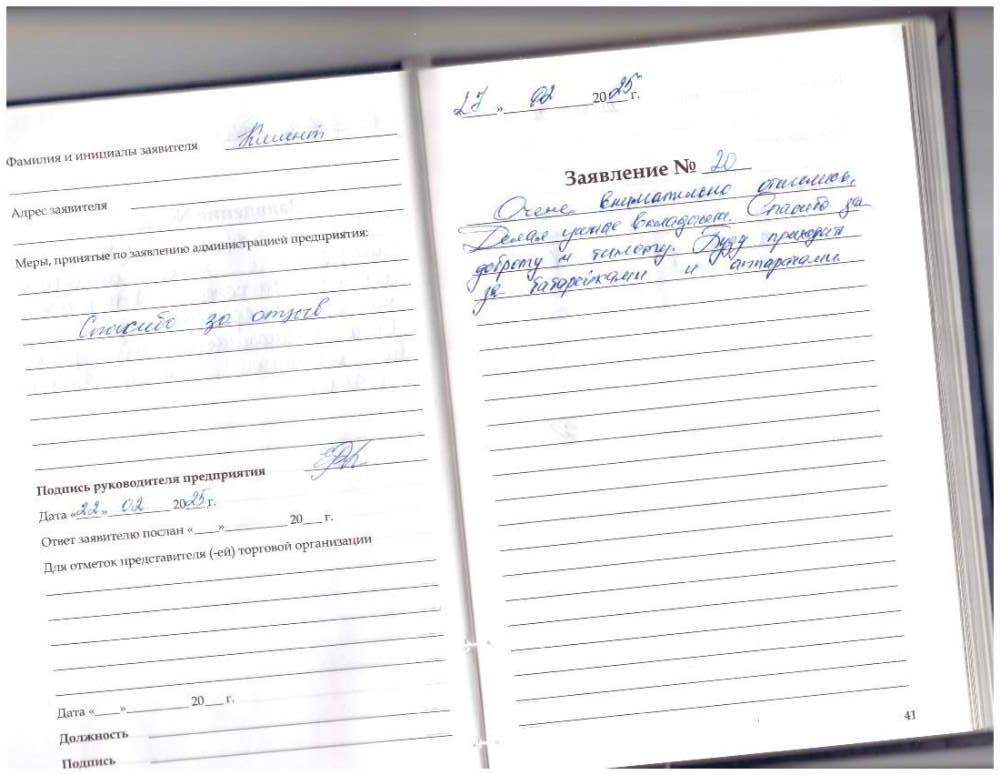 Фамилия и инициалы заявителя Клиент
Адрес заявителя
Меры, принятые по заявлению администрацией предприятия:
Спасибо за отзыв
Подпись руководителя предприятия
Дата «22» 02 2025 г.
Ответ заявителю послан «___» ___ 20___ г.
Для отметок представителя (-ей) торговой организации
Дата «___» ___ 20___ г.
Должность
Подпись
27 » 02 2025 г.
Заявление № 20
Очень внимательно отнеслись,
Делая ушные вкладыши. Спасибо за
доброту и теплоту. Буду приходить
за батарейками и аппаратами.
41